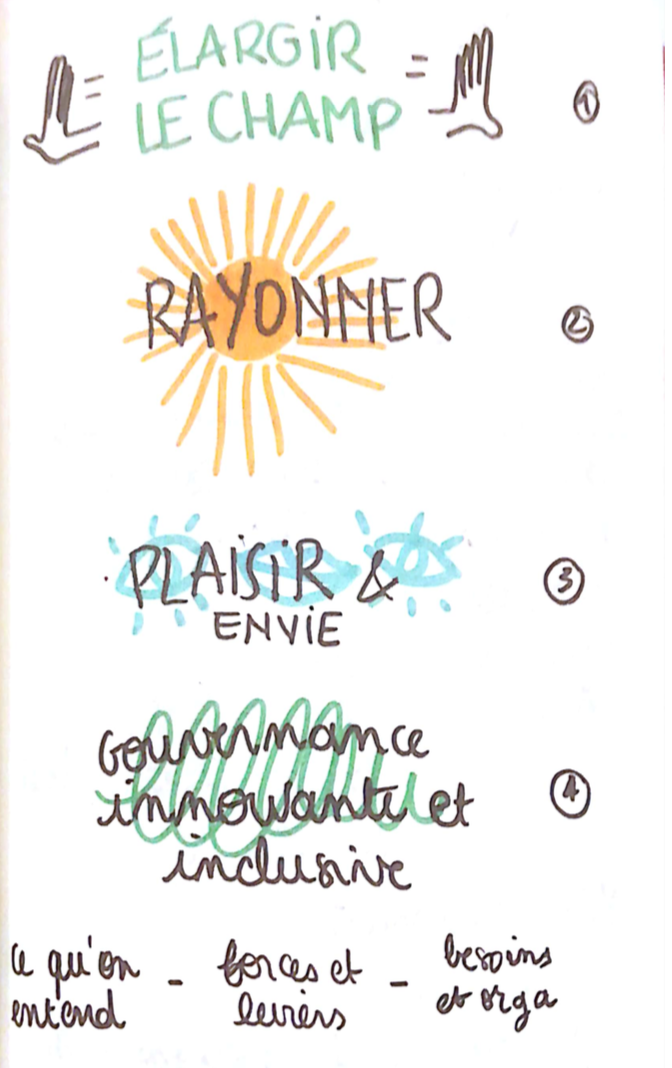 = ÉLARGIR =
LE CHAMP
①
RAYONNER
②
PLAISIR &
ENVIE
③
Gouvernance
innovante et
inclusive
④
ce qu'on
entend
-
forces et
leviers
-
besoins
et orga